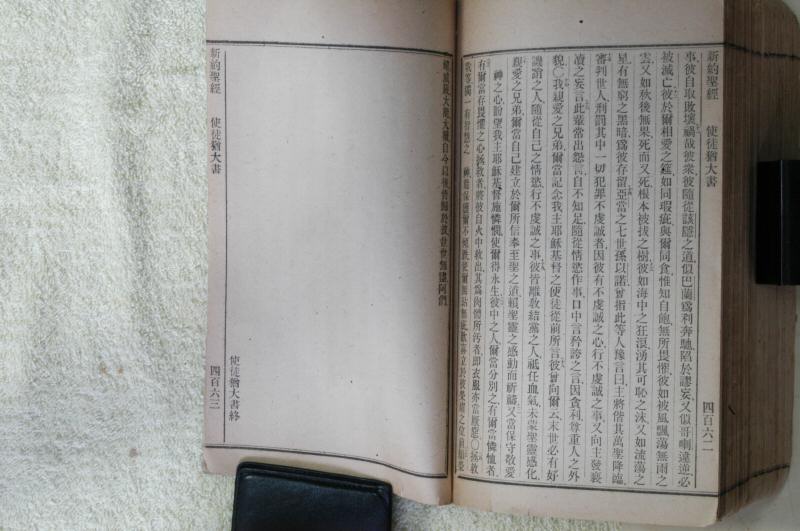 新約聖經 使徒猶大書 四百六二
事、彼自取敗壞、禍哉彼衆、彼隨從該隱之道、似巴蘭爲利奔馳、陷於謬妄、又似可喇違逆、必
被滅亡、彼於爾相愛之筵、如同瑕疵、與爾同食、惟知自飽、無所畏懼、彼如被風飄蕩無雨之
雲、又如秋後無果、死而又死、根本被拔之樹、彼如海中之狂浪、湧其可恥之沫、又如流蕩之
星、有無窮之黑暗、爲彼存留、亞當之七世孫以諾、曾指此等人豫言曰、主將偕其萬聖降臨、
審判世人、刑罰其中一切犯罪不虔誠者、因彼有不虔誠之心、行不虔誠之事、又向主發褻
瀆之妄言、此輩常出怨言、自不知足、隨從情慾作事、口中言矜誇之言、因貪利尊重人之外
貌、〇我親愛之兄弟、爾當記念我主耶穌基督之使徒從前所言、彼曾向爾云、末世必有好
譏誚之人、隨從自己之情慾、行不虔誠之事、彼皆離敎結黨之人、祗任血氣、未蒙聖靈感化、
親愛之兄弟、爾當自己建立於爾所信奉至聖之道、賴聖靈之感動而祈禱、又當保守敬愛
神之心、盼望我主耶穌基督施憐憫、使爾得永生、彼中之人、爾當分別之、有爾當憐恤者、
有爾當存畏懼之心拯救者、將彼自火中救出、其爲肉體所污者、卽衣服亦當厭惡、〇拯救
我等獨一有智慧之 神、能保護爾不傾跌、使爾無玷無疵、歡喜立於彼榮耀之位前、願榮
耀威嚴大能大權、自今以後皆歸於彼、世世無盡、阿們、
使徒猶大書終
新約聖經 使徒猶大書 四百六三